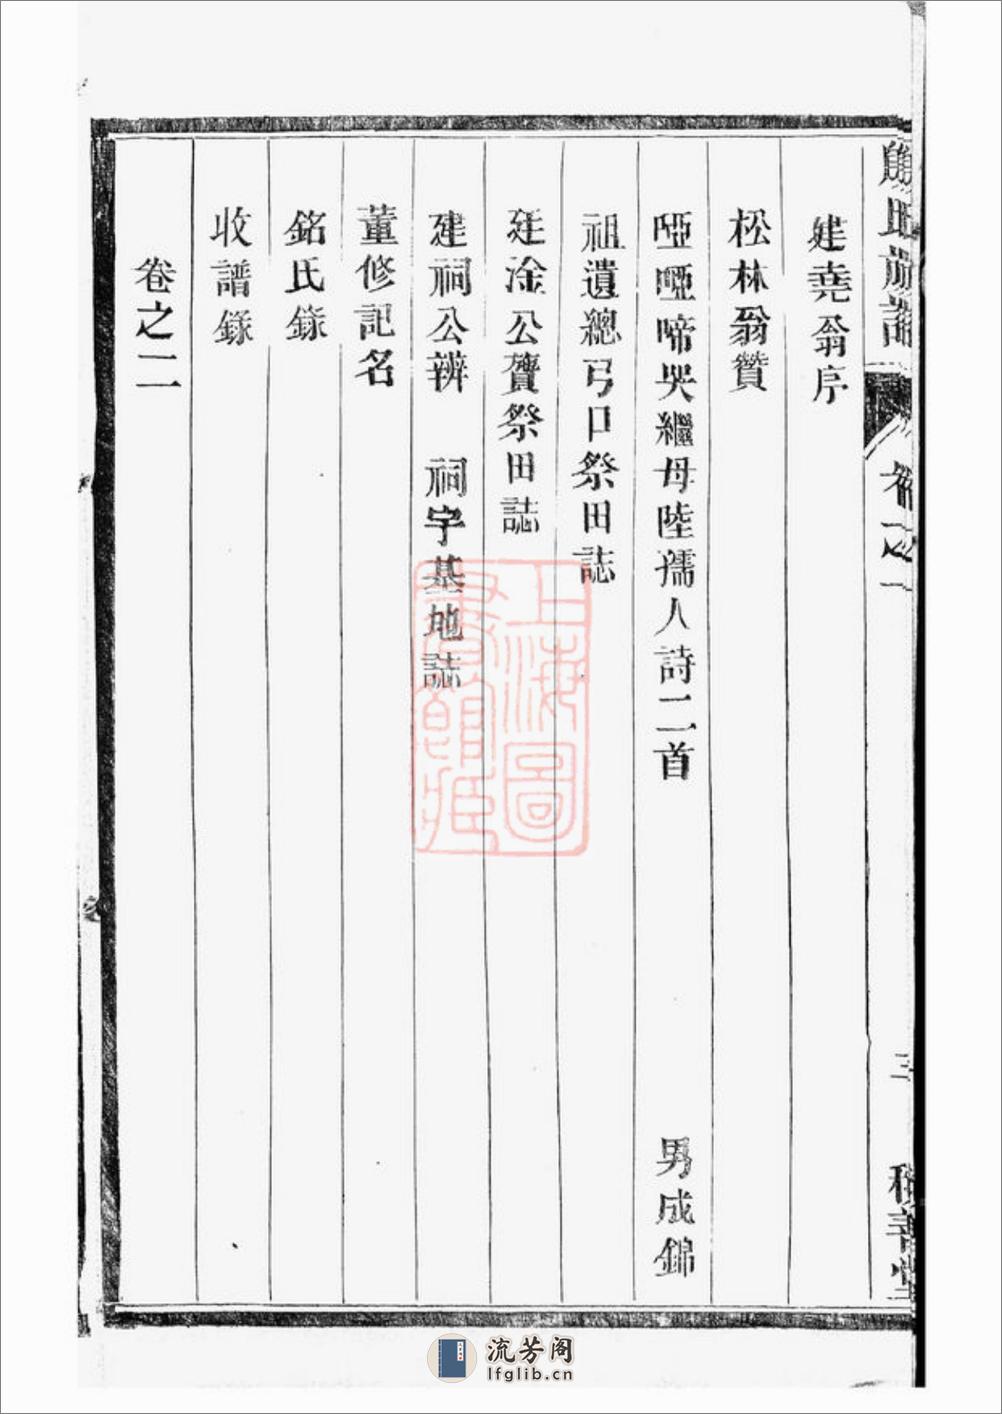 建堯翁序
松林翁贊
啞啞啼哭繼母陸孺人詩二首 男成錦
祖遺總弓口祭田誌
廷淦公賡祭田誌
建祠公辨 祠宇基地誌
董修記名
銘氏錄
收譜錄
卷之二
卷之一
三 積善堂
上海圖書館藏
流芳阁
lfglib.cn